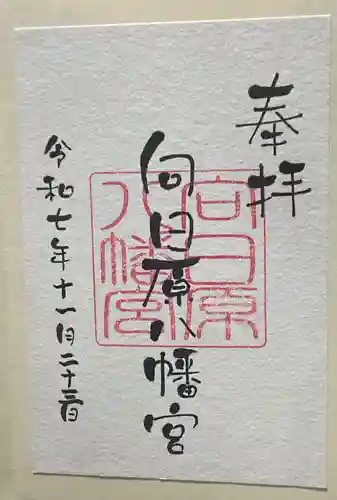 奉拝
向日原八幡宮
向日原
八幡宮
令和七年十一月二十三日